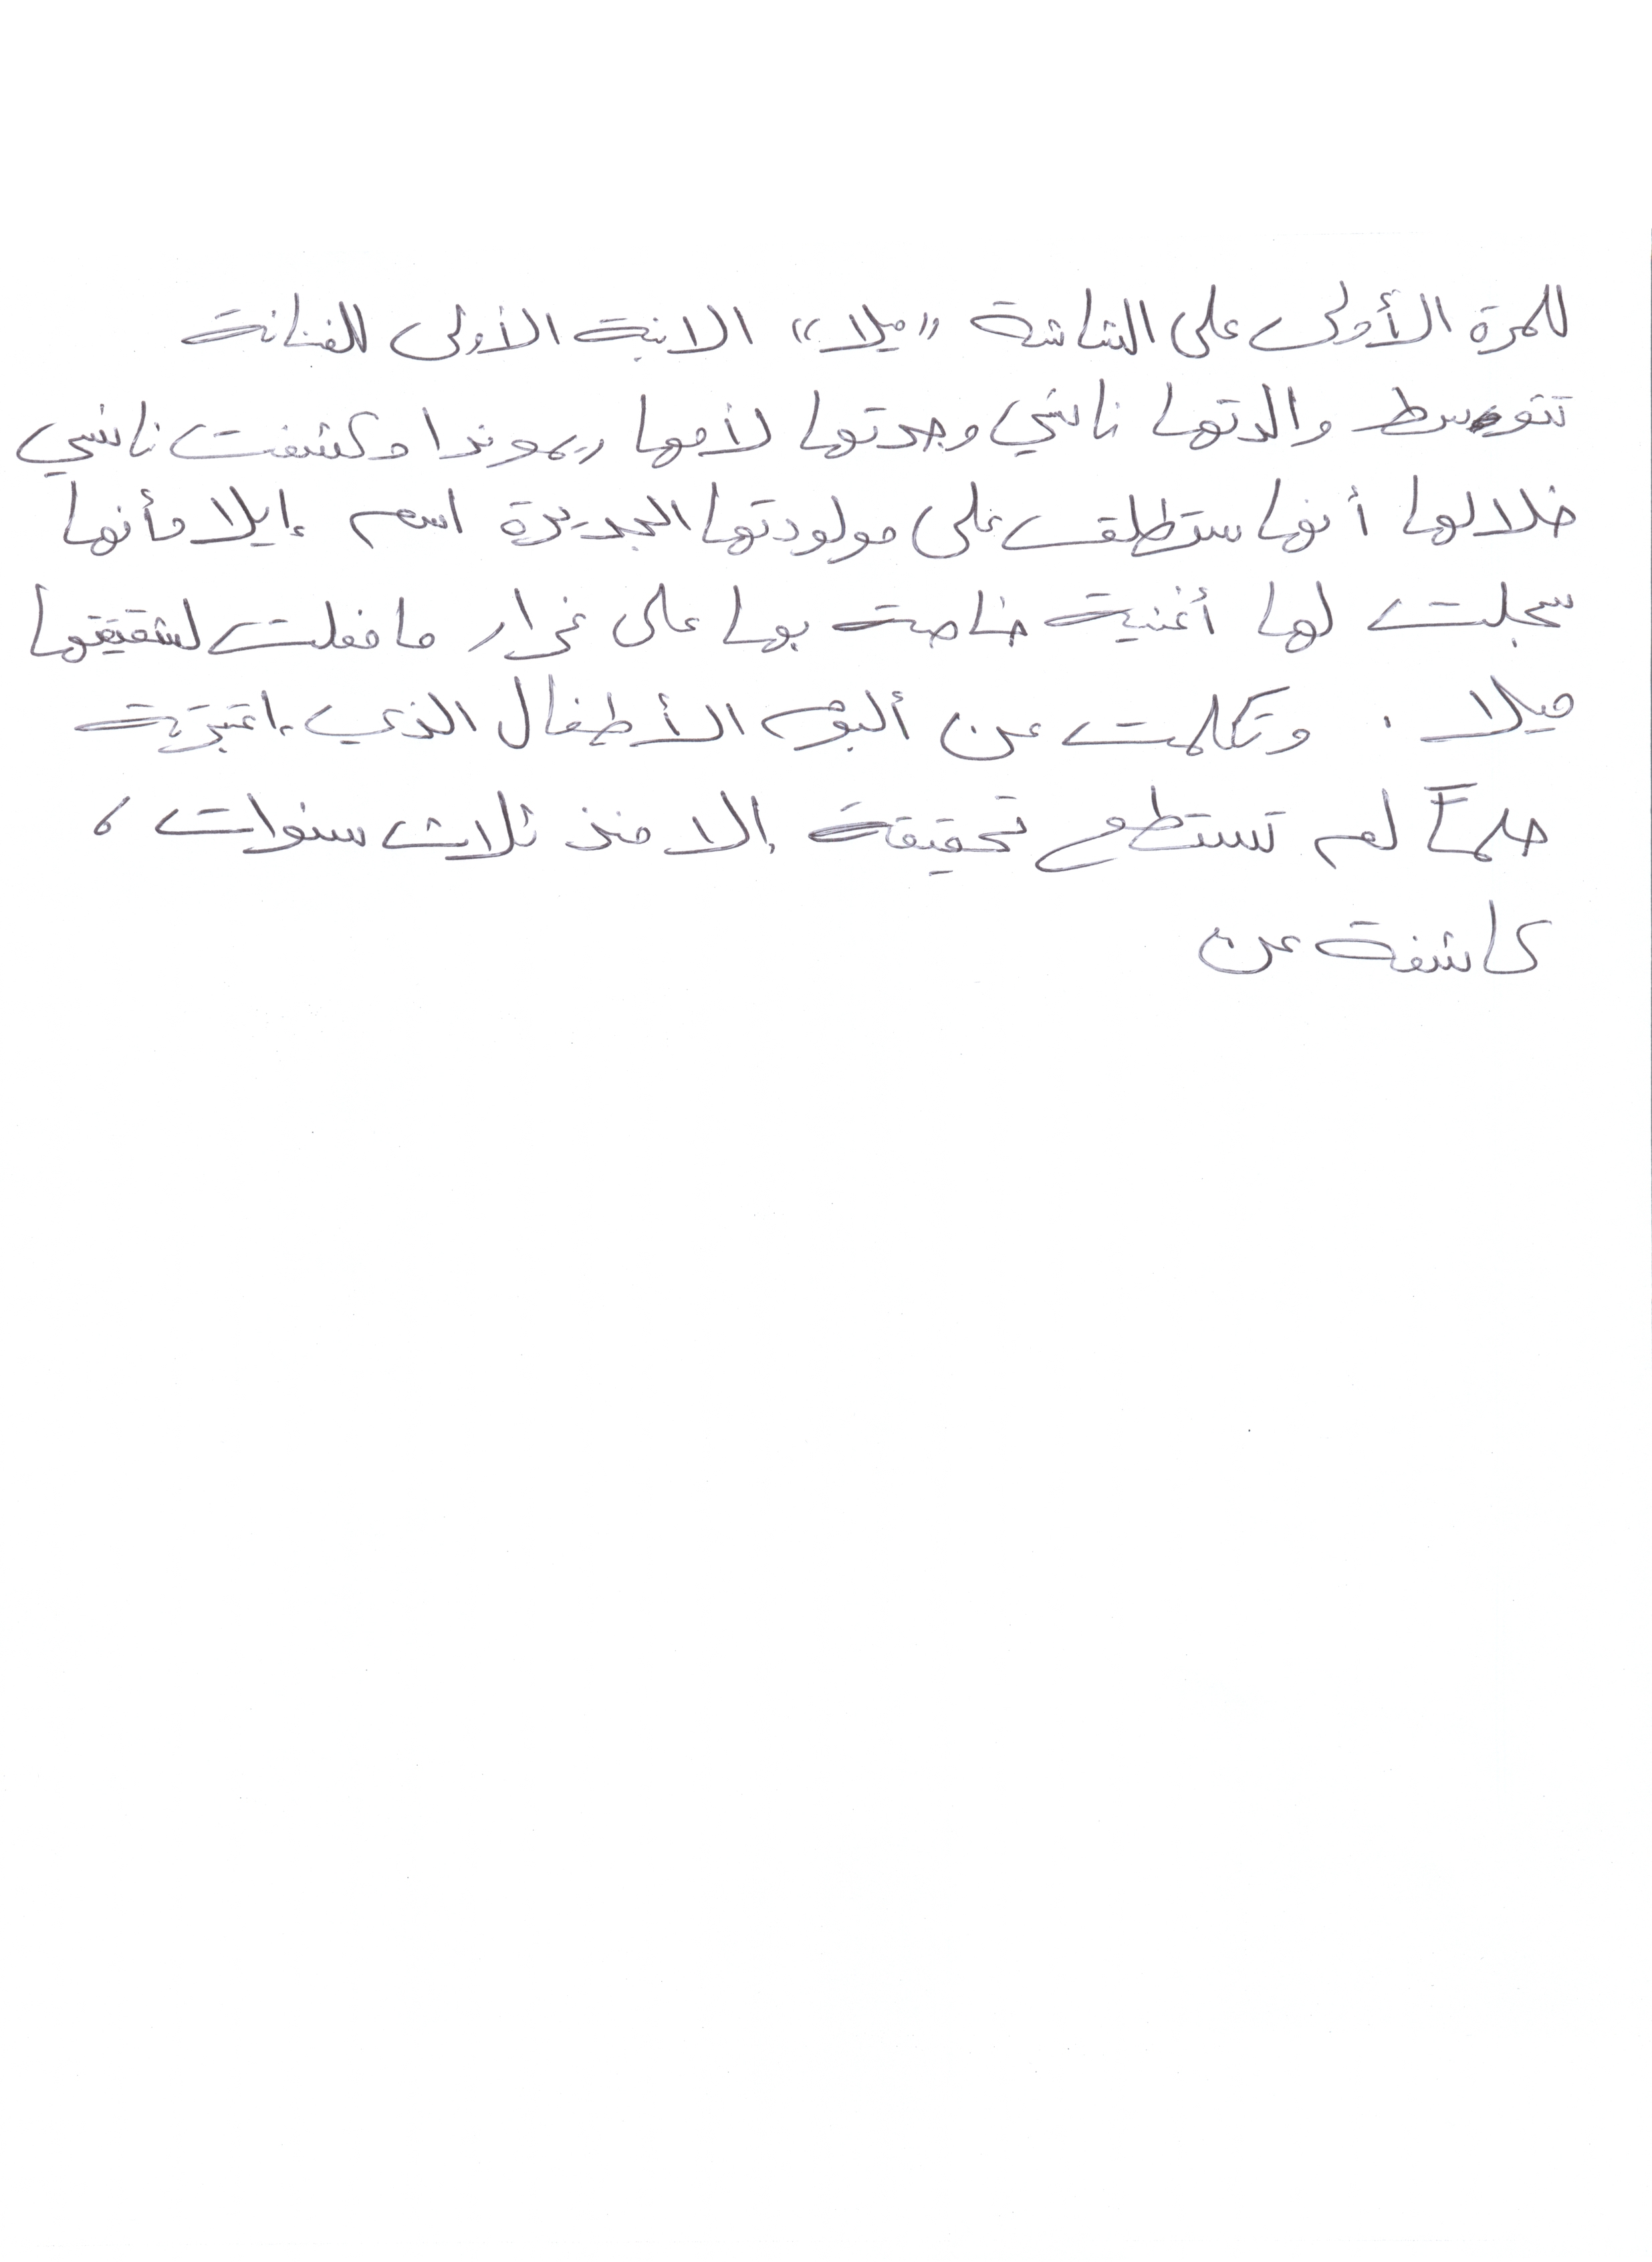 للمرة الأولى على الشاشة "ميلا" الابنة الأولى للفنانة
تتوسط والدتها نانسي وجدتها لأمها ريموندا وكشفت نانسي
خلالها أنها ستطلق على مولودتها الجديدة اسم إيلا وأنها
سجلت لها أغنية خاصة بها على غرار ما فعلت لشقيقتها
ميلا . وتكلمت عن ألبوم الأطفال الذي اعتبرته
حلماً لم تستطع تحقيقة إلا منذ ثلاث سنوات ،
كاشفة عن